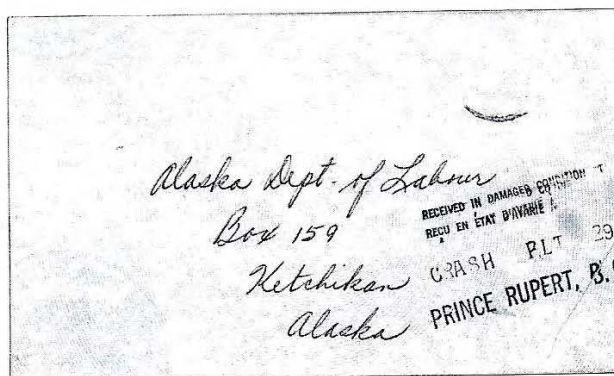 Alaska Dept. of Labour
Box 159
Ketchikan
Alaska
RECEIVED IN DAMAGED CONDITION
REÇU EN ETAT D'AVARIE
CRASH FLT 29
PRINCE RUPERT, B.